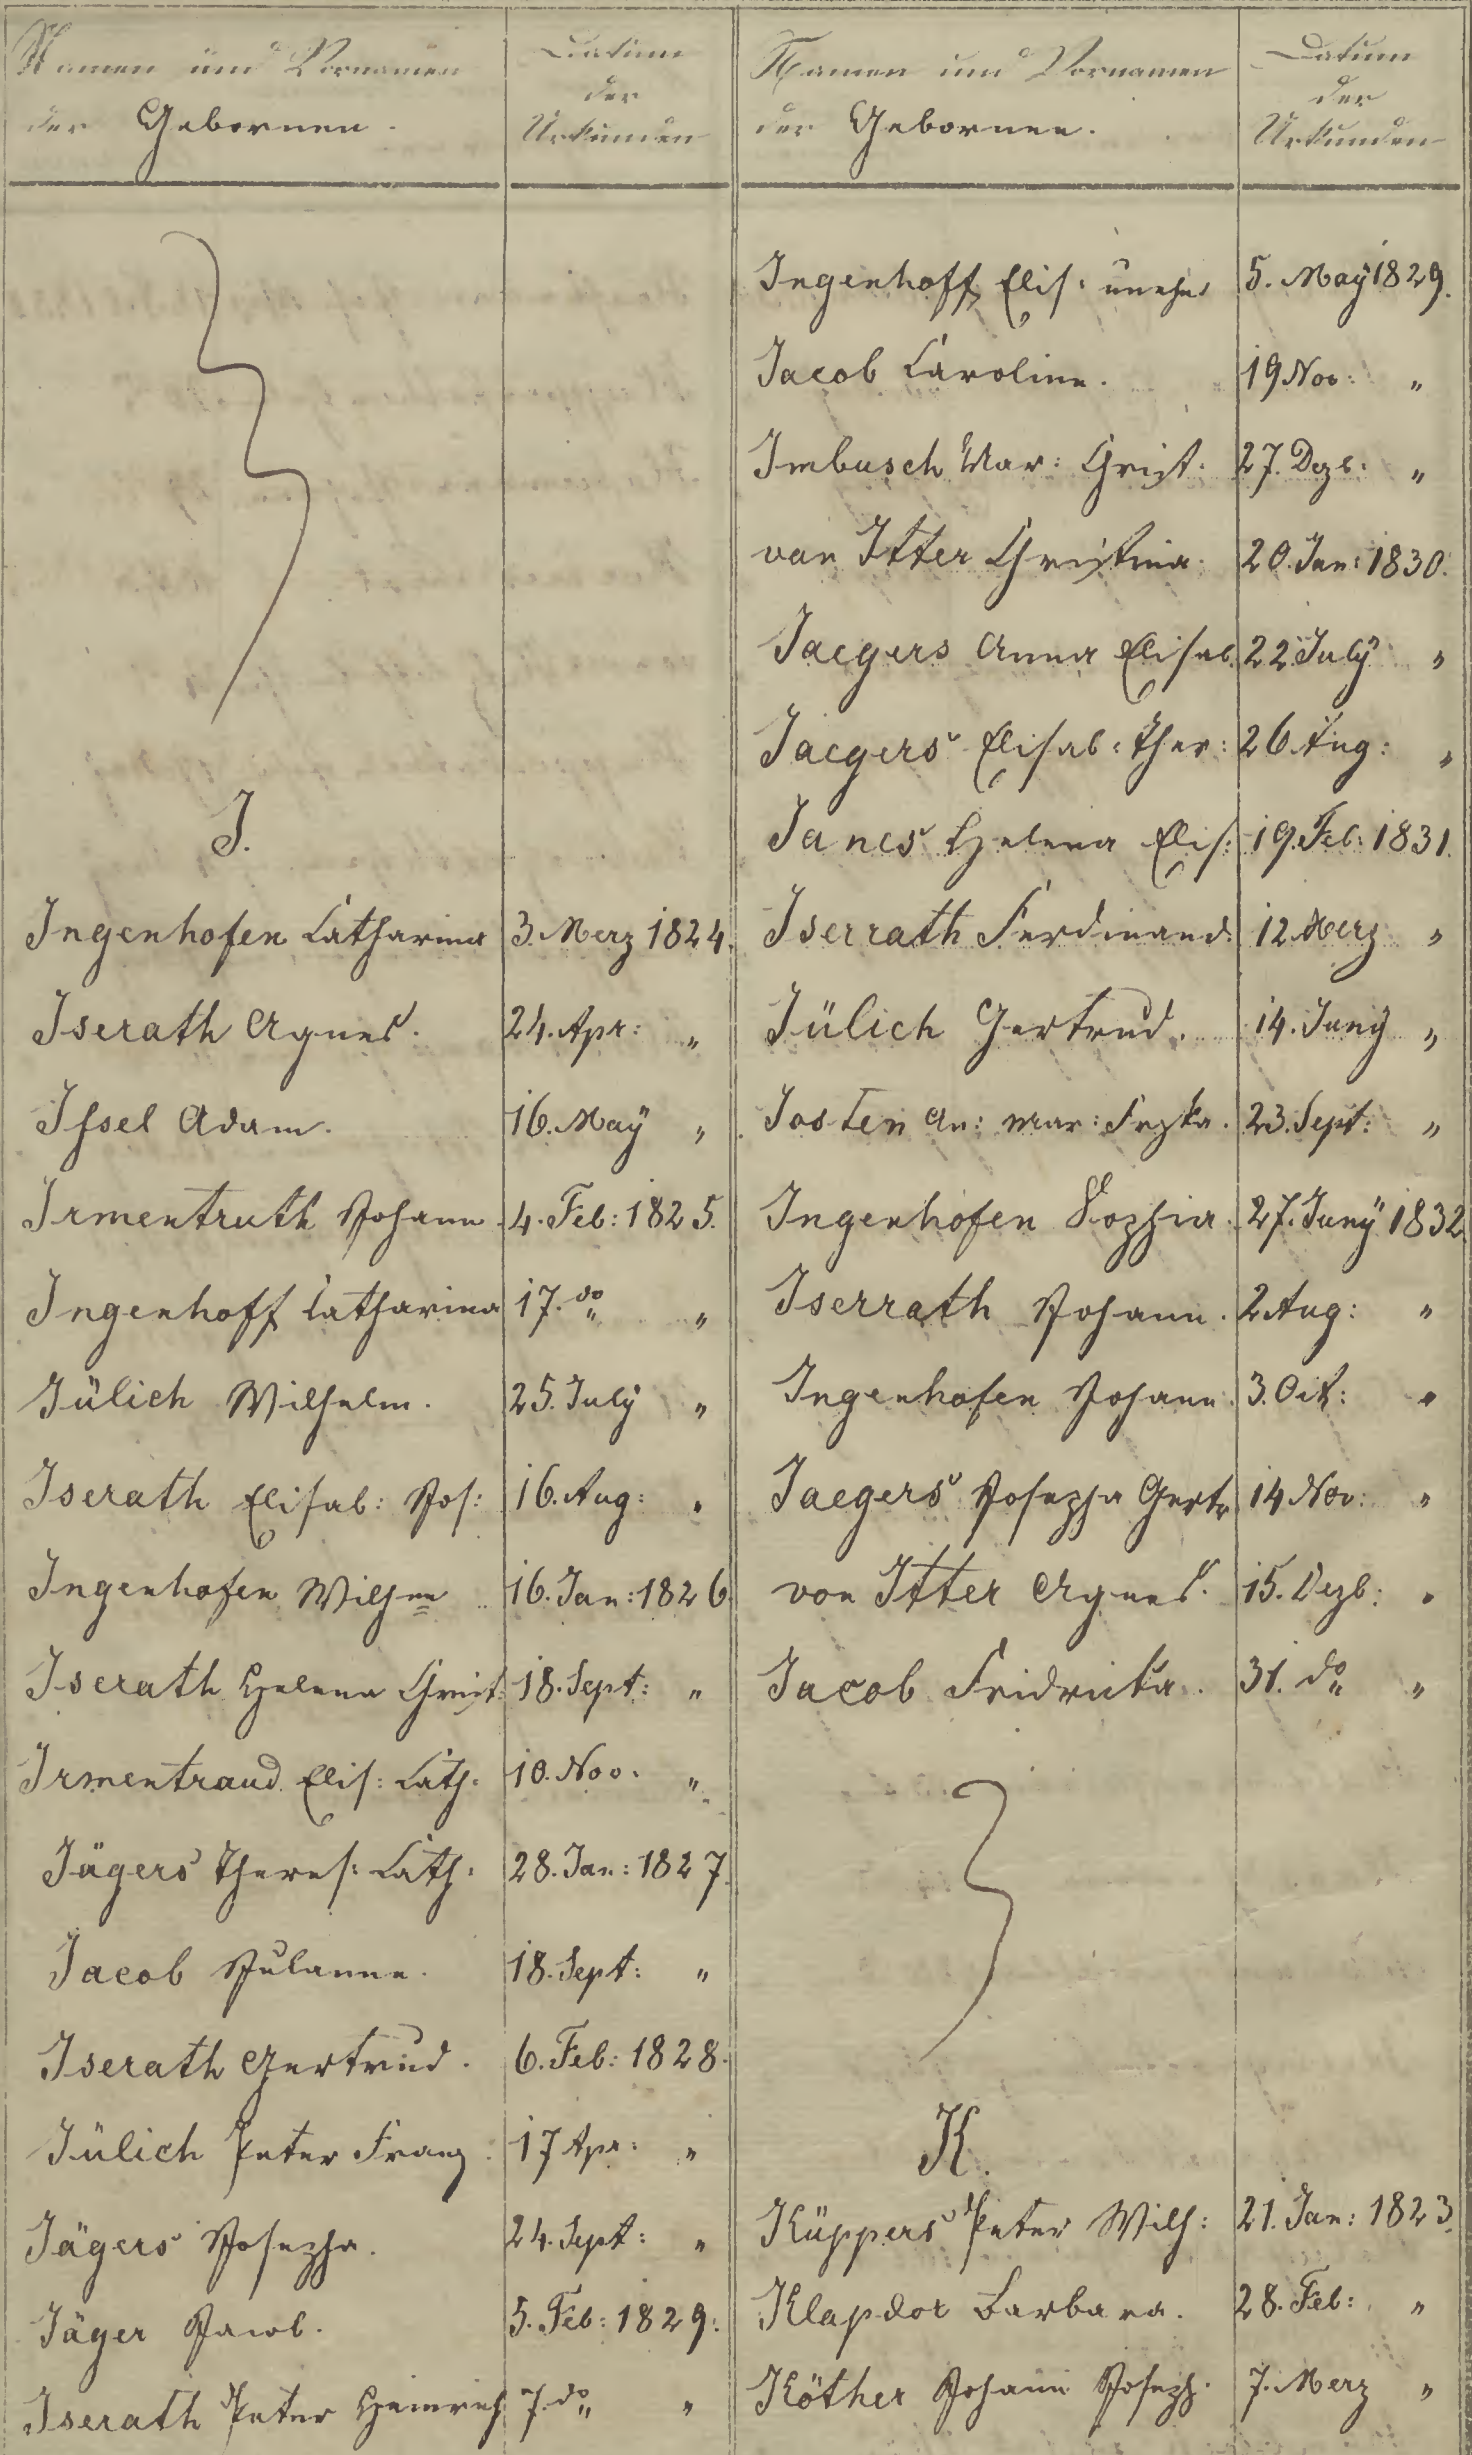 Namen und Vornamen
der Gebornen.
Datum
der
Urkunden
J.
Ingenhofen Catharina 3. Merz 1824.
Iserath Agnes. 24. Apr: "
Issel Adam. 16. May "
Irmentruth Johann. 4. Feb: 1825.
Ingenhoff Catharina 17. do "
Jülich Wilhelm. 25. July "
Iserath Elisab: Jos: 16. Aug: "
Ingenhofen Wilhne 16. Jan: 1826.
Iserath Helena Christ: 18. Sept: "
Irmentraud Elis: Cath. 10. Nov. "
Jägers Theres: Cath. 28. Jan: 1827.
Jacob Julianne. 18. Sept: "
Iserath Gertrud. 6. Feb: 1828.
Jülich Peter Franz. 17 Apr: "
Jägers Josepha. 24. Sept: "
Jäger Jacob. 5. Feb: 1829.
Iserath Peter Heinrich 7. do "
Namen und Vornamen
der Gebornen.
Datum
der
Urkunden
Ingenhoff Elis: unehe: 5. May 1829.
Jacob Caroline. 19 Nov: "
Imbusch Mar: Christ. 27. Dezb. "
van Itter Christina. 20. Jan: 1830.
Jaegers Anna Elisab. 22 July "
Jaegers Elisab: Ther: 26 Aug: "
Janes Helena Elis: 19. Feb: 1831.
Iserrath Ferdinand. 12 Merz "
Jülich Gertrud. 14. Juny "
Josten An: Mar: Frzka. 23. Sept: "
Ingenhofen Sophia. 27. Juny 1832.
Iserrath Johann. 2 Aug: "
Ingenhofen Johann. 3. Oct: "
Jaegers Josepha Gertr 14 Nov: "
von Itter Agnes. 15. Dezb: "
Jacob Fridricka. 31. do "
K.
Küppers Peter Wilh: 21. Jan: 1823.
Klapdor Barbara. 28. Feb: "
Köther Johann Joseph. 7. Merz "